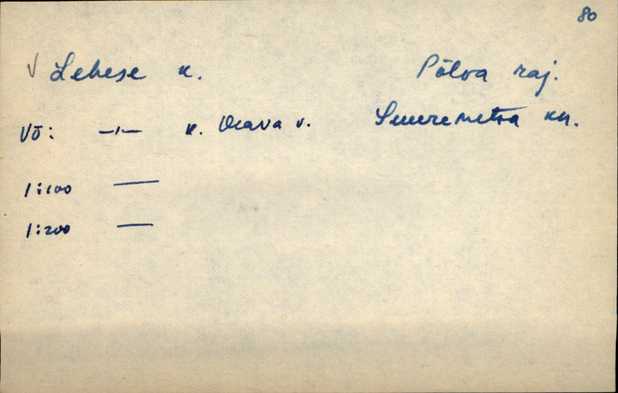 80
√ Lebese k. Põlva raj.
VÕ: —"— k. Orava v. Suuremetsa kn.
1:100 —
1:200 —